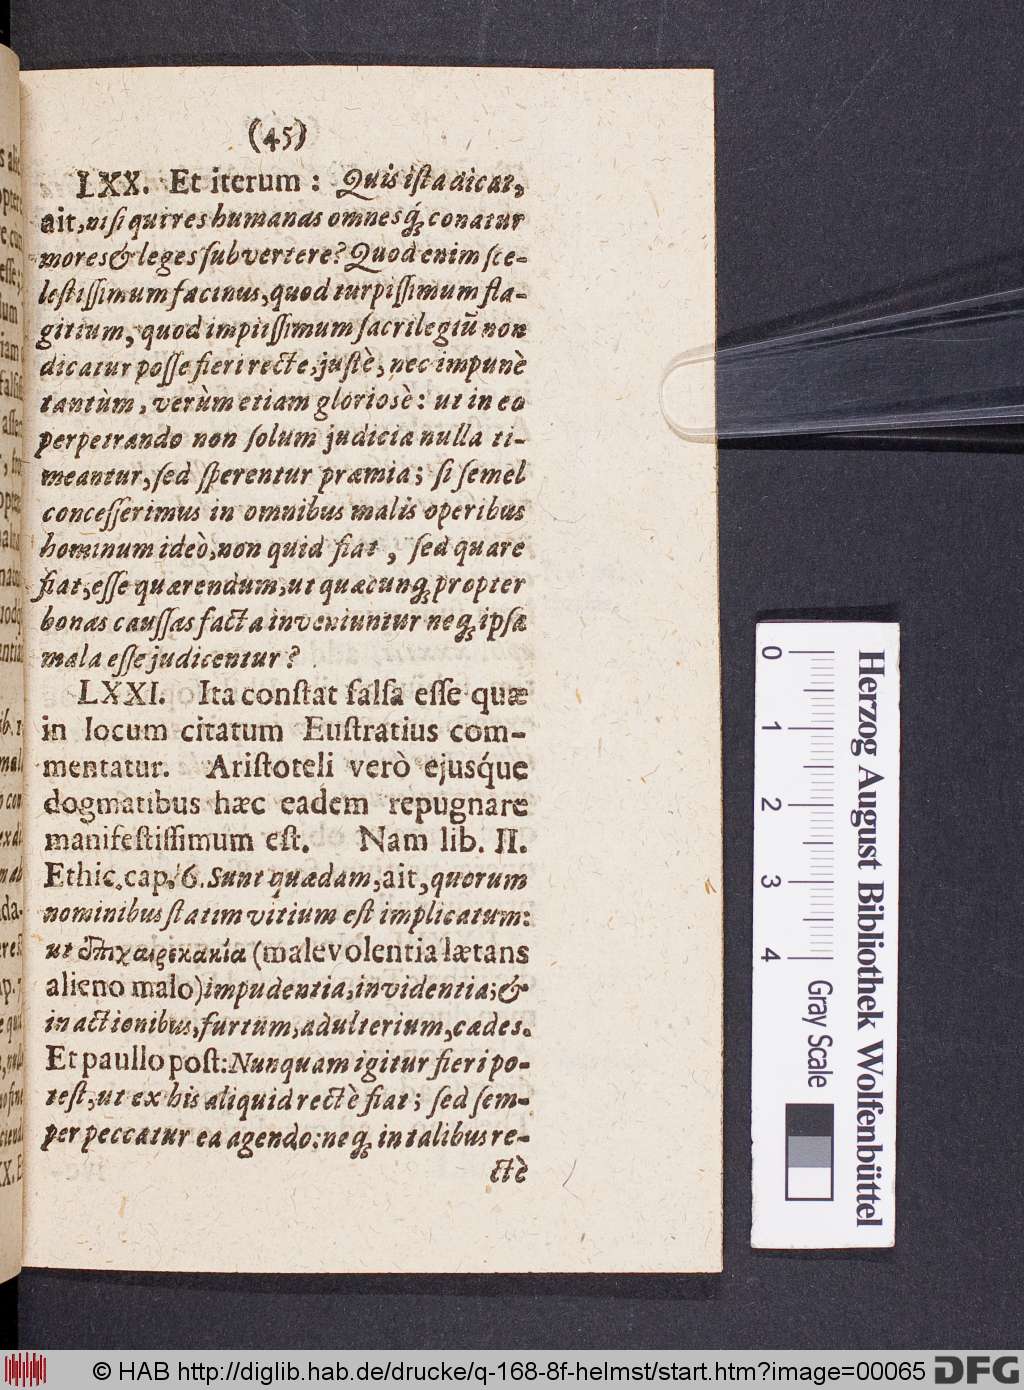 (45)
LXX. Et iterum : Quis ista dicat,
ait, nisi qui res humanas omnesq́; conatur
mores & leges subvertere? Quod enim sce-
lestissimum facinus, quod turpissimum fla-
gitium, quod impiissimum sacrilegiũ non
dicatur posse fieri recte, justè, nec impunè
tantùm, verùm etiam gloriosè: ut in eo
perpetrando non solum judicia nulla ti-
meantur, sed sperentur præmia; si semel
concesserimus in omnibus malis operibus
hominum ideò, non quid fiat, sed quare
fiat, esse quærendum, ut quæcunq; propter
bonas caussas facta inveniuntur neq; ipsa
mala esse judicentur?
LXXI. Ita constat falsa esse quæ
in locum citatum Eustratius com-
mentatur. Aristoteli verò ejusq́ue
dogmatibus hæc eadem repugnare
manifestissimum est. Nam lib. II.
Ethic. cap. 6. Sunt quædam, ait, quorum
nominibus statim vitium est implicatum:
ut ἐπιχαιρεκακία (malevolentia lætans
alieno malo) impudentia, invidentia; &
in actionibus, furtum, adulterium, cædes.
Et paullo post: Nunquam igitur fieri po-
test, ut ex his aliquid rectè fiat; sed sem-
per peccatur ea agendo: neq; in talibus re-
ctè
0 1 2 3 4
Herzog August Bibliothek Wolfenbüttel
Gray Scale
© HAB http://diglib.hab.de/drucke/q-168-8f-helmst/start.htm?image=00065
DFG